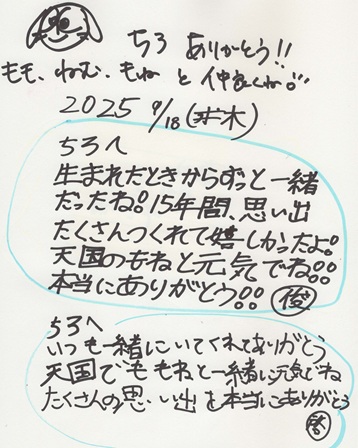 ちろ ありがとう!!
もも、ねむ、もねと仲良くね!!
2025 9/18 (木)
ちろへ
生まれたときからずっと一緒
だったね!15年間、思い出
たくさんつくれて嬉しかったよ!
天国のもねと元気でね!!
本当にありがとう!! 俊
ちろへ
いつも一緒にいてくれてありがとう
天国でももねと一緒に元気でね
たくさんの思い出を本当にありがとう